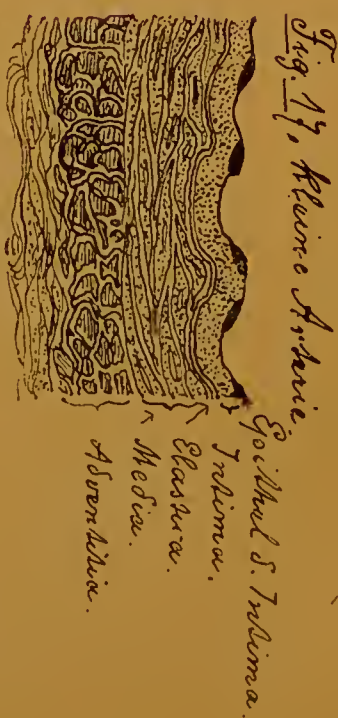 Fig. 17, kleine Arterie.
Epithel d. Intima.
Intima.
Elastica.
Media.
Adventitia.